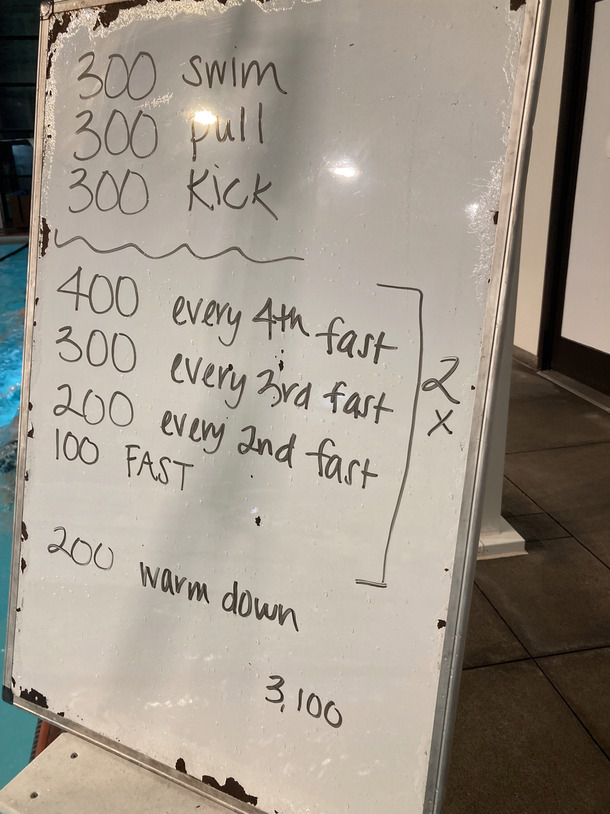 300 swim
300 pull
300 Kick
400 every 4th fast
300 every 3rd fast
200 every 2nd fast
100 FAST
2x
200 warm down
3,100